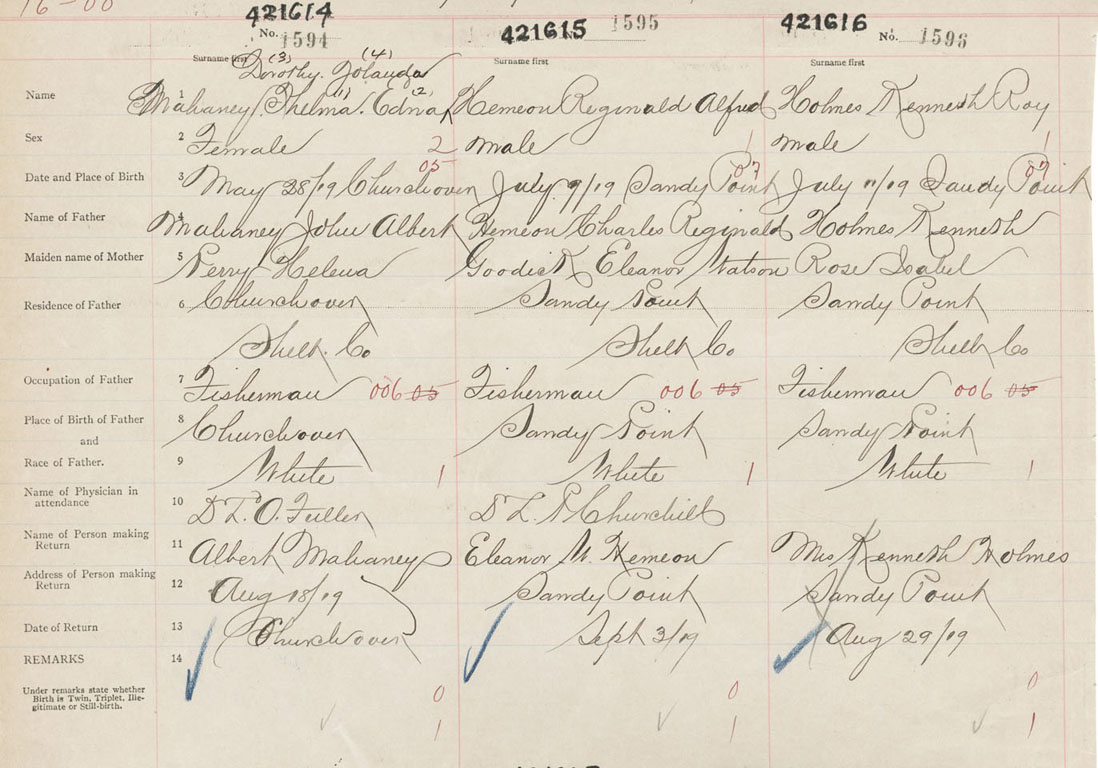 16-00
421614 421615 421616
No. 1594 No. 1595 No. 1596
Surname first Surname first Surname first
(3) (4)
Dorothy. Yolanda
(1) (2)
Name 1 Mahaney Thelma. Edna Hemeon Reginald Alfred Holmes Kenneth Roy
Sex 2 Female 2 male 1 male 1
05 07 07
Date and Place of Birth 3 May 28/19 Churchover July 9/19 Sandy Point July 11/19 Sandy Point
Name of Father 4 Mahaney John Albert Hemeon Charles Reginald Holmes Kenneth
Maiden name of Mother 5 Perry Helena Goodick Eleanor Watson Rose Isabel
Residence of Father 6 Churchover Sandy Point Sandy Point
Shelb. Co Shelb Co Shelb Co
Occupation of Father 7 Fisherman 006 05 Fisherman 006 05 Fisherman 006 05
Place of Birth of Father 8 Churchover Sandy Point Sandy Point
and
Race of Father. 9 White 1 White 1 White 1
Name of Physician in
attendance 10 Dr L. O. Fuller Dr L. P. Churchill
Name of Person making
Return 11 Albert Mahaney Eleanor W. Hemeon Mrs Kenneth Holmes
Address of Person making
Return 12 Aug 18/19 Sandy Point Sandy Point
Date of Return 13 Churchover Sept 3/19 Aug 29/19
REMARKS 14
Under remarks state whether
Birth is Twin, Triplet, Ille-
gitimate or Still-birth.
0 0 0
1 1 1